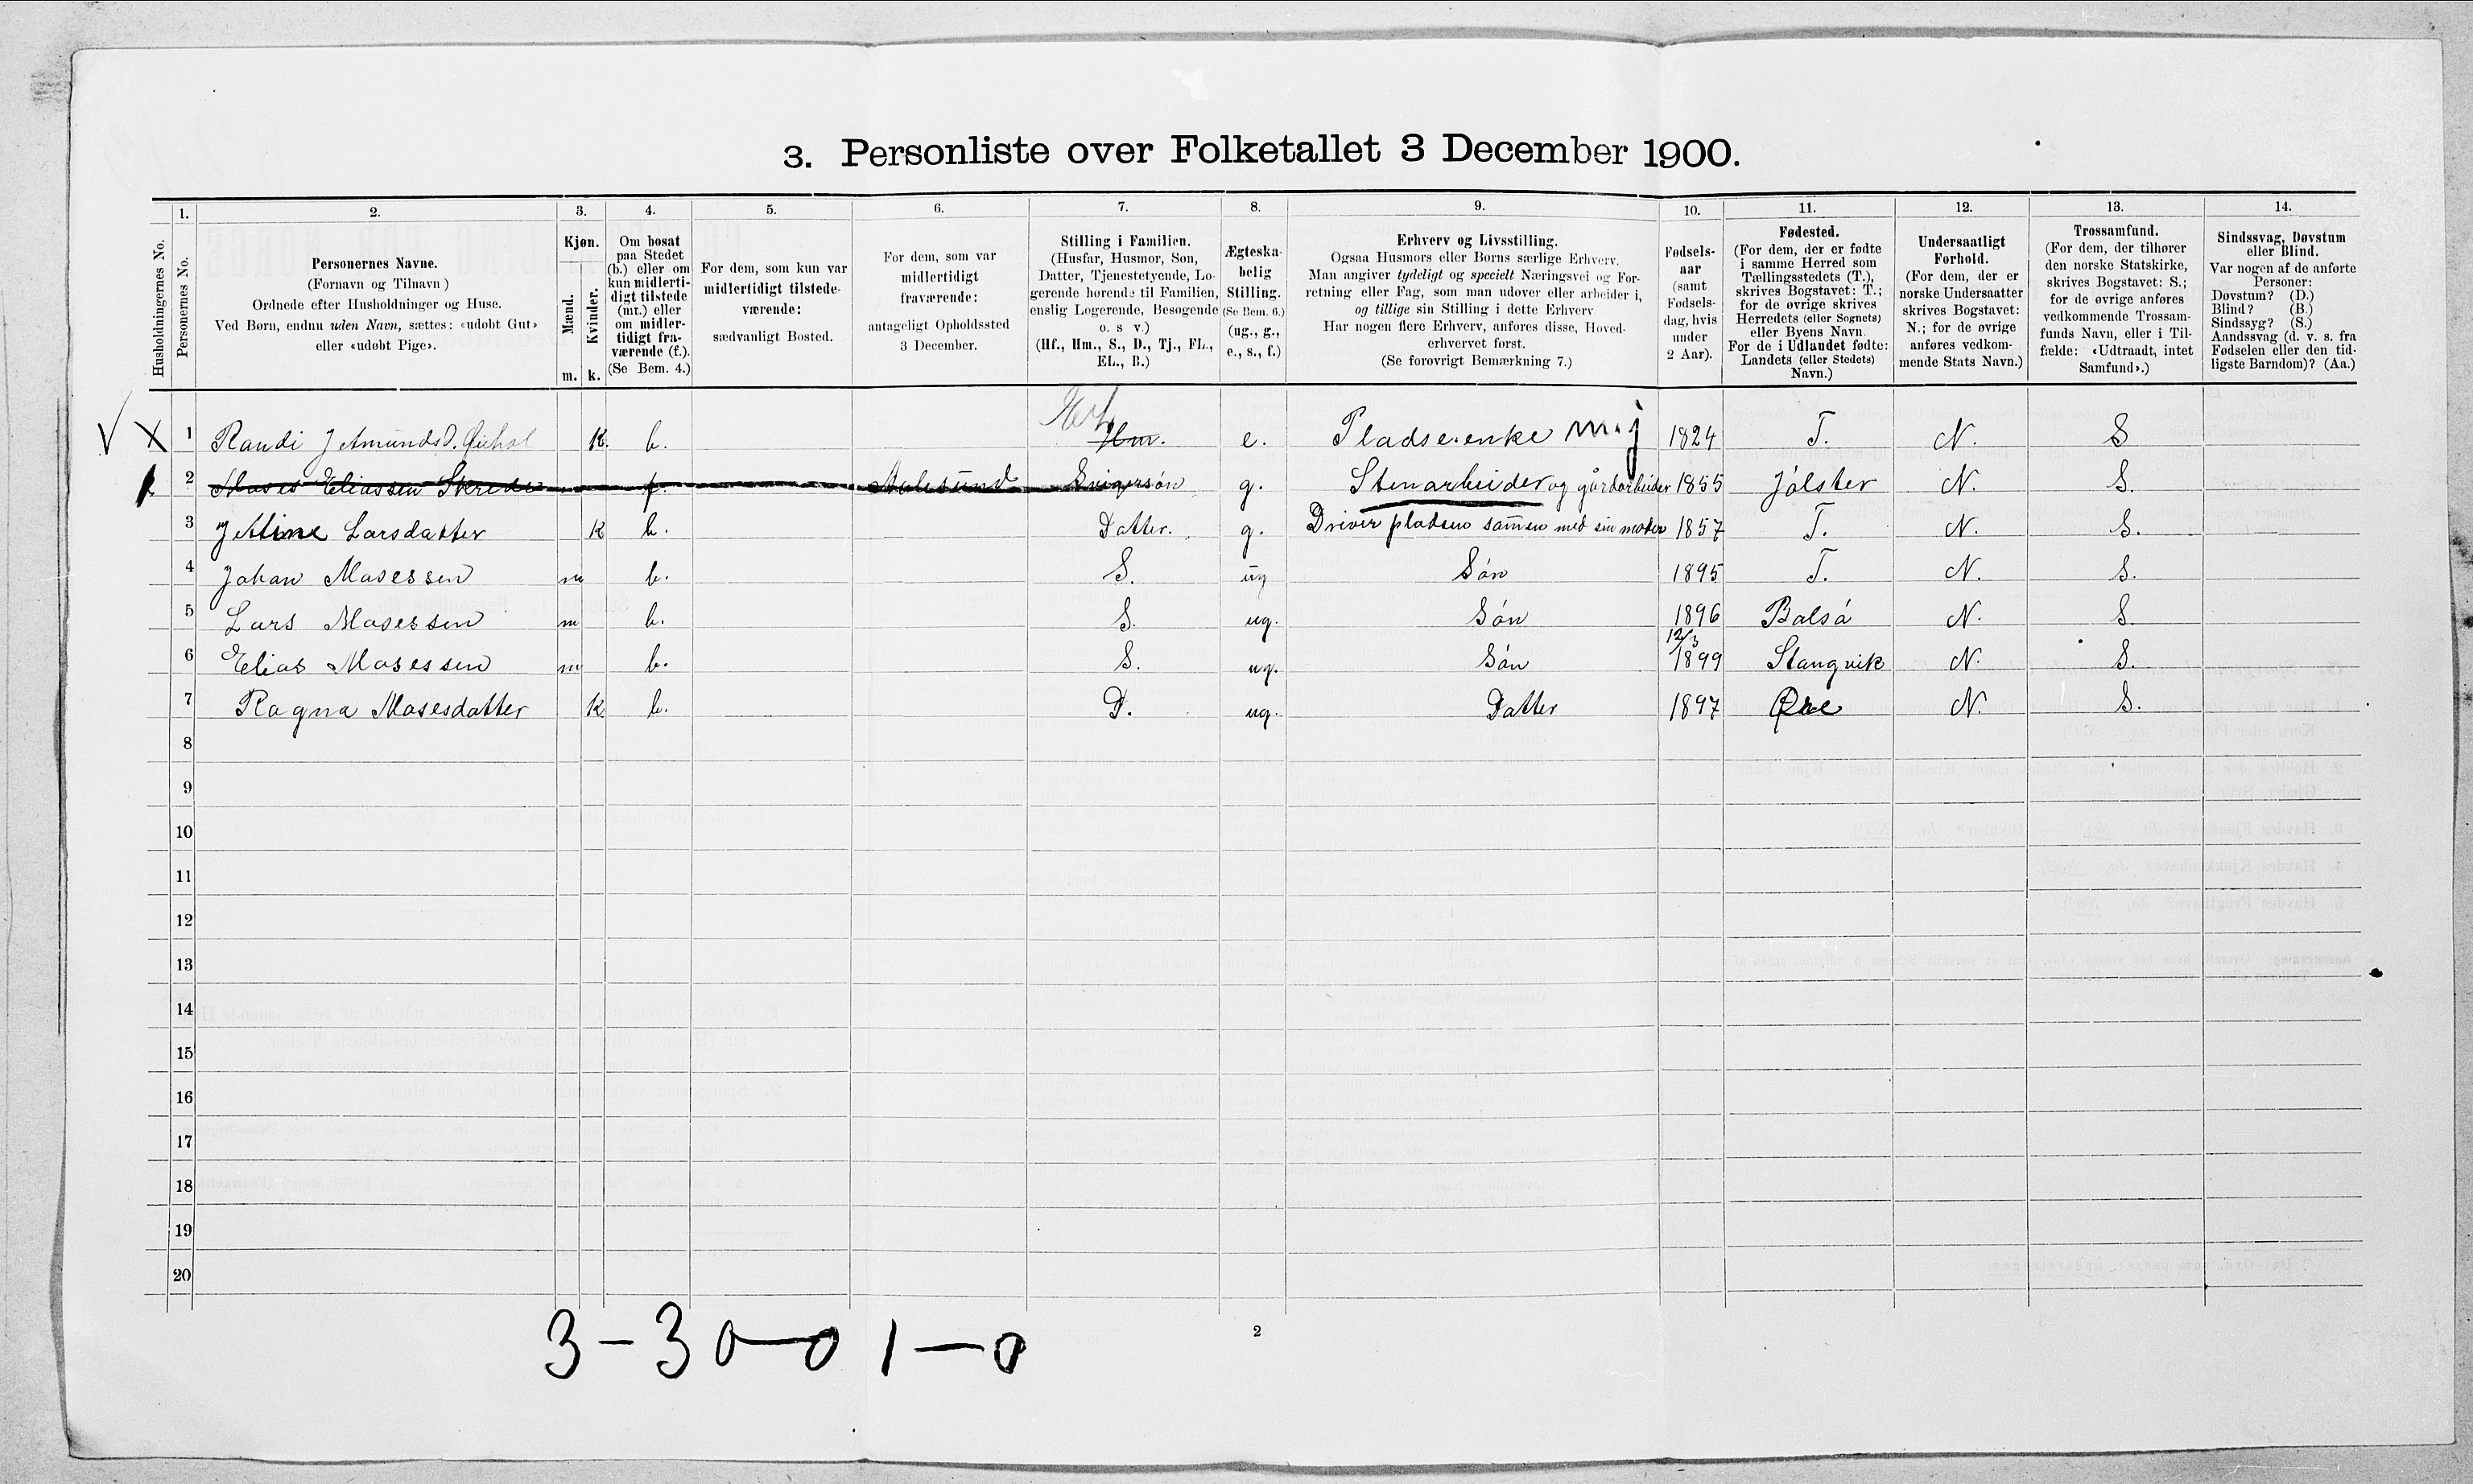 3. Personliste over Folketallet 3 December 1900.
Husholdningernes No.
1.
Personernes No.
2.
Personernes Navne.
(Fornavn og Tilnavn)
Ordnede efter Husholdninger og Huse.
Ved Børn, endnu uden Navn, sættes: «udøbt Gut»
eller «udøbt Pige».
3.
Kjøn.
Mænd.
Kvinder.
m. k.
4.
Om bosat
paa Stedet
(b.) eller om
kun midlerti-
digt tilstede
(mt.) eller
om midler-
tidigt fra-
værende (f.).
(Se Bem. 4.)
5.
For dem, som kun var
midlertidigt tilstede-
værende:
sædvanligt Bosted.
6.
For dem, som var
midlertidigt
fraværende:
antageligt Opholdssted
3 December.
7.
Stilling i Familien.
(Husfar, Husmor, Søn,
Datter, Tjenestetyende, Lo-
gerende hørende til Familien,
enslig Logerende, Besøgende
o. s v.)
(Hf., Hm., S., D., Tj., FL.,
EL., B.)
8.
Ægteska-
belig
Stilling.
(Se Bem. 6.)
(ug., g.,
e., s., f.)
9.
Erhverv og Livsstilling.
Ogsaa Husmors eller Børns særlige Erhverv.
Man angiver tydeligt og specielt Næringsvei og For-
retning eller Fag, som man udøver eller arbeider i,
og tillige sin Stilling i dette Erhverv
Har nogen flere Erhverv, anføres disse, Hoved-
erhvervet først.
(Se forøvrigt Bemærkning 7.)
10.
Fødsels-
aar
(samt
Fødsels-
dag, hvis
under
2 Aar).
11.
Fødested.
(For dem, der er fødte
i samme Herred som
Tællingsstedets (T.),
skrives Bogstavet: T.;
for de øvrige skrives
Herredets (eller Sognets)
eller Byens Navn.
For de i Udlandet fødte:
Landets (eller Stedets)
Navn.)
12.
Undersaatligt
Forhold.
(For dem, der er
norske Undersaatter
skrives Bogstavet:
N.; for de øvrige
anføres vedkom-
mende Stats Navn.)
13.
Trossamfund.
(For dem, der tilhører
den norske Statskirke,
skrives Bogstavet: S.;
for de øvrige anføres
vedkommende Trossam-
funds Navn, eller i Til-
fælde: «Udtraadt, intet
Samfund».)
14.
Sindssvag, Døvstum
eller Blind.
Var nogen af de anførte
Personer:
Døvstum? (D.)
Blind? (B.)
Sindssyg? (S.)
Aandssvag (d. v. s. fra
Fødselen eller den tid-
ligste Barndom)? (Aa.)
V X 1 Randi JetmundsD. k. b. Hm. e. Pladseenke m.j 1824 T. N. S
2 Moses Eliassen Skrede f. Aalesund Svigersøn g. Stenarbeider og gårdarbeider 1855 Jølster N. S.
3 Jettine Larsdatter k b. Datter. g. Driver pladsen sammen med sin moder 1857 T. N. S.
4 Johan Mosessen m b. S. ug Søn 1895 T. N. S.
5 Lars Mosessen m b. S. ug. Søn 1896 Bolsø N. S.
6 Elias Mosessen m b. S. ug. Søn 12/3 1899 Stangvik N. S.
7 Ragna Mosesdatter k b. D. ug. Datter 1897 Øre N. S.
8
9
10
11
12
13
14
15
16
17
18
19
20
3 - 30 - 0 1 - 0
2